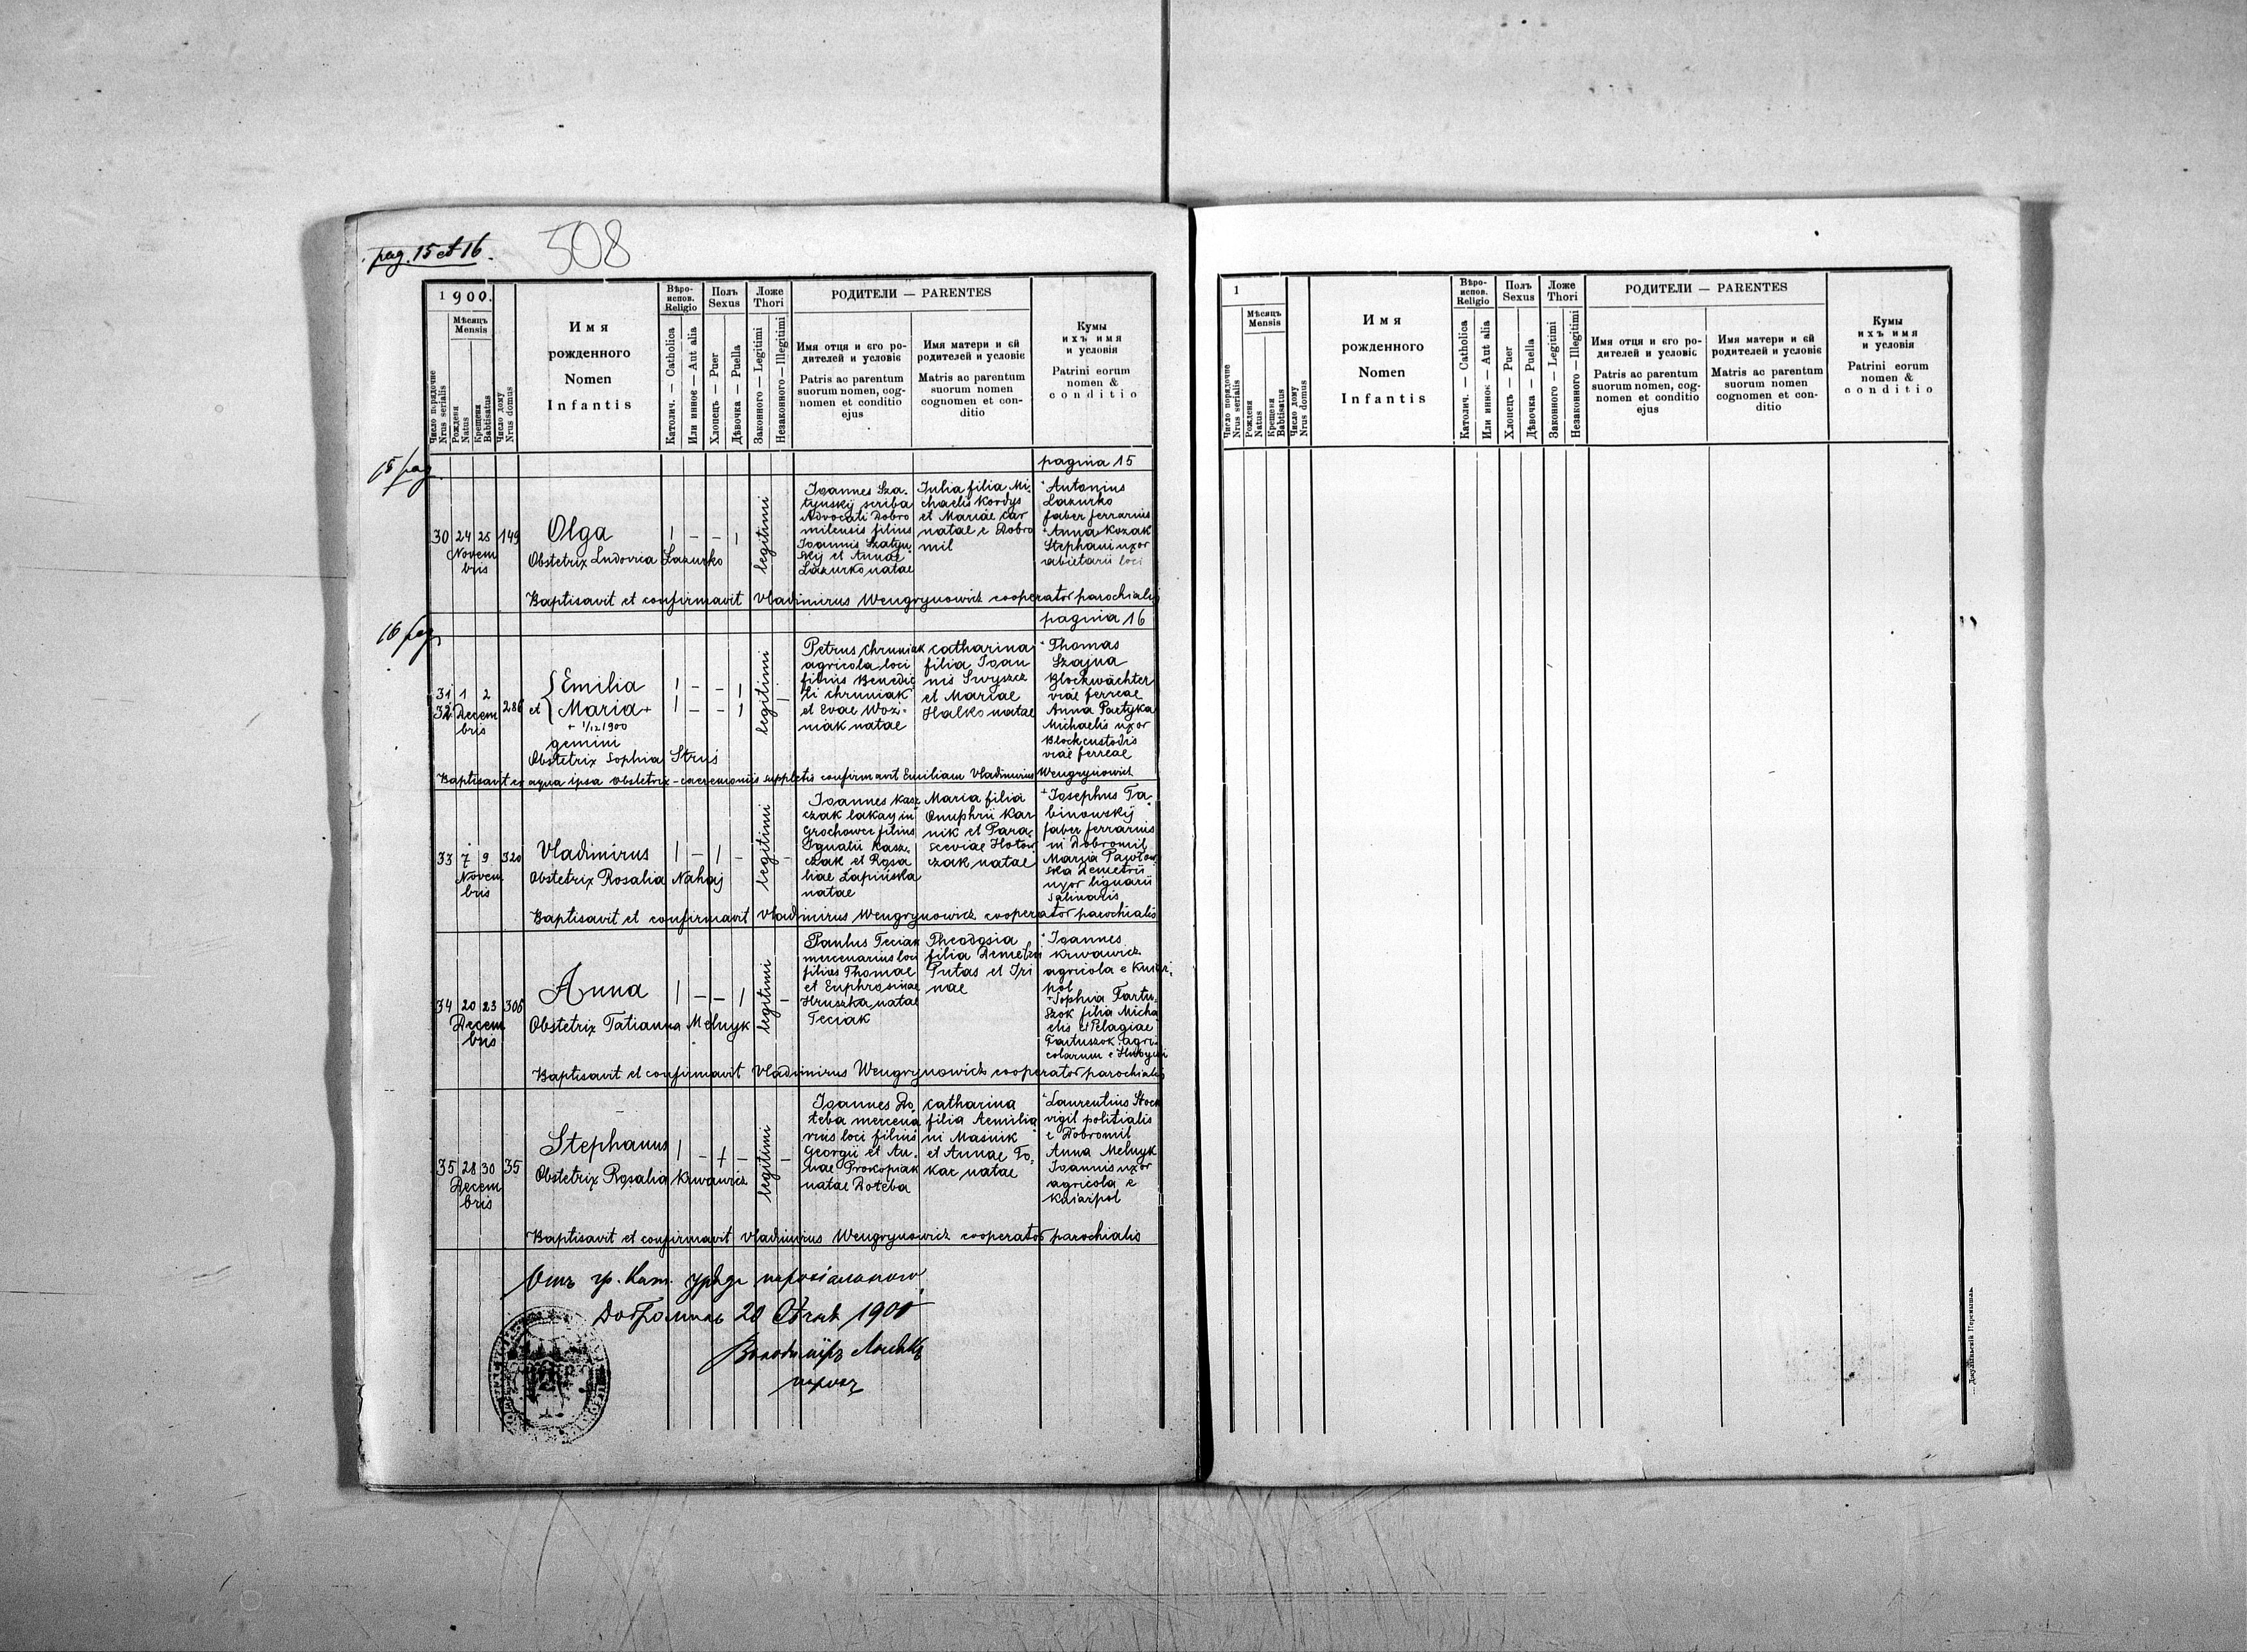 pag. 15 et 16.
508
1900.
Мѣсяцъ
Mensis
Число порядочне
Nrus serialis
Рожденя
Natus
Крещеня
Babtisatus
Число дому
Nrus domus
Имя
рожденного
Nomen
Infantis
Вѣро-
испов.
Religio
Католич. — Catholica
Или инное — Aut alia
Полъ
Sexus
Хлопець — Puer
Дѣвочка — Puella
Ложе
Thori
Законного — Legitimi
Незаконного — Illegitimi
РОДИТЕЛИ — PARENTES
Имя отця и єго ро-
дителей и условіє
Patris ac parentum
suorum nomen, cog-
nomen et conditio
ejus
Имя матери и єй
родителей и условіє
Matris ac parentum
suorum nomen
cognomen et con-
ditio
Кумы
ихъ имя
и условія
Patrini eorum
nomen &
conditio
15 pag
pagina 15
30 24 25 149
Novem
bris
Olga
Obstetrix Ludovica Lazurko
legitimi
Joannes Sza-
tynskij scriba
Advocati Dobro
milensis filius
Joannis Szatyn
skij et Annae
Lazurko natae
Julia filia Mi-
chaelis Kordys
et Mariae Car
natae e Dobro
mil
Antonius
Lazurko
faber ferrarius
Anna Kozak
Stephani uxor
abietarii loci
Baptisavit et confirmavit Vladimirus Wengrynowicz cooperator parochialis
16 pag
pagina 16
31 1 2
32 Decem 286
bris
{Emilia
et Maria +
+ 1/12 1900
gemini
Obstetrix Sophia Struś
legitimi
Petrus Chruniak
agricola loci
filius Benedic
ti Chruniak
et Evae Woz-
niak natae
Catharina
filia Joan
nis Swyszcz
et Mariae
Halko natae
Thomas
Szajna
Blockwächter
viae ferreae
Anna Partyka
Michaelis uxor
Blockcustodis
viae ferreae
Baptisavit ex aqua ipsa obstetrix - caeremoniis suppletis confirmavit Emiliam Vladimirus Wengrynowicz
33 7 9 320
Novem
bris
Vladimirus
Obstetrix Rosalia Nahaj
legitimi
Joannes Kasz
czak lakay in
Grochowce filius
Ignatii Kasz-
czak et Rosa
liae Łapińska
natae
Maria filia
Onuphrii Kar
nik et Para-
sceviae Hotow
czak natae
Josephus Ta
binowskij
faber ferrarius
in Dobromil
Marya Pawłow
ska Demetrii
uxor lignarii
salinaris
Baptisavit et confirmavit Vladimirus Wengrynowicz cooperator parochialis
34 20 23 306
Decem
bris
Anna
Obstetrix Tatianna Melnyk
legitimi
Paulus Teciak
mercenarius loci
filius Thomae
et Euphrosinae
Hruszka natae
Teciak
Theodosia
filia Demetrii
Putas et Iri
nae
Joannes
Krwawicz
agricola e Kniaz-
pol
Sophia Fartu-
szok filia Micha
elis et Pelagiae
Fartuszok agri-
colarum e
Baptisavit et confirmavit Vladimirus Wengrynowicz cooperator parochialis
35 28 30 35
Decem
bris
Stephanus
Obstetrix Rosalia Krwawicz
legitimi
Joannes Do
teba mercena
rius loci filius
Georgii et An-
nae Prokopiak
natae Doteba
Catharina
filia Aemilia
ni Masnik
et Annae To-
kar natae
Laurentius Stock
vigil politialis
e Dobromil
Anna Melnyk
Joannis uxor
agricola e
Kniażpol
Baptisavit et confirmavit Vladimirus Wengrynowicz cooperator parochialis
Отъ гр. кат. уряда парохіального
Добромиль 20 1901
Володимиръ
парохъ
1
Мѣсяцъ
Mensis
Число порядочне
Nrus serialis
Рожденя
Natus
Крещеня
Babtisatus
Число дому
Nrus domus
Имя
рожденного
Nomen
Infantis
Вѣро-
испов.
Religio
Католич. — Catholica
Или инное — Aut alia
Полъ
Sexus
Хлопець — Puer
Дѣвочка — Puella
Ложе
Thori
Законного — Legitimi
Незаконного — Illegitimi
РОДИТЕЛИ — PARENTES
Имя отця и єго ро-
дителей и условіє
Patris ac parentum
suorum nomen, cog-
nomen et conditio
ejus
Имя матери и єй
родителей и условіє
Matris ac parentum
suorum nomen
cognomen et con-
ditio
Кумы
ихъ имя
и условія
Patrini eorum
nomen &
conditio